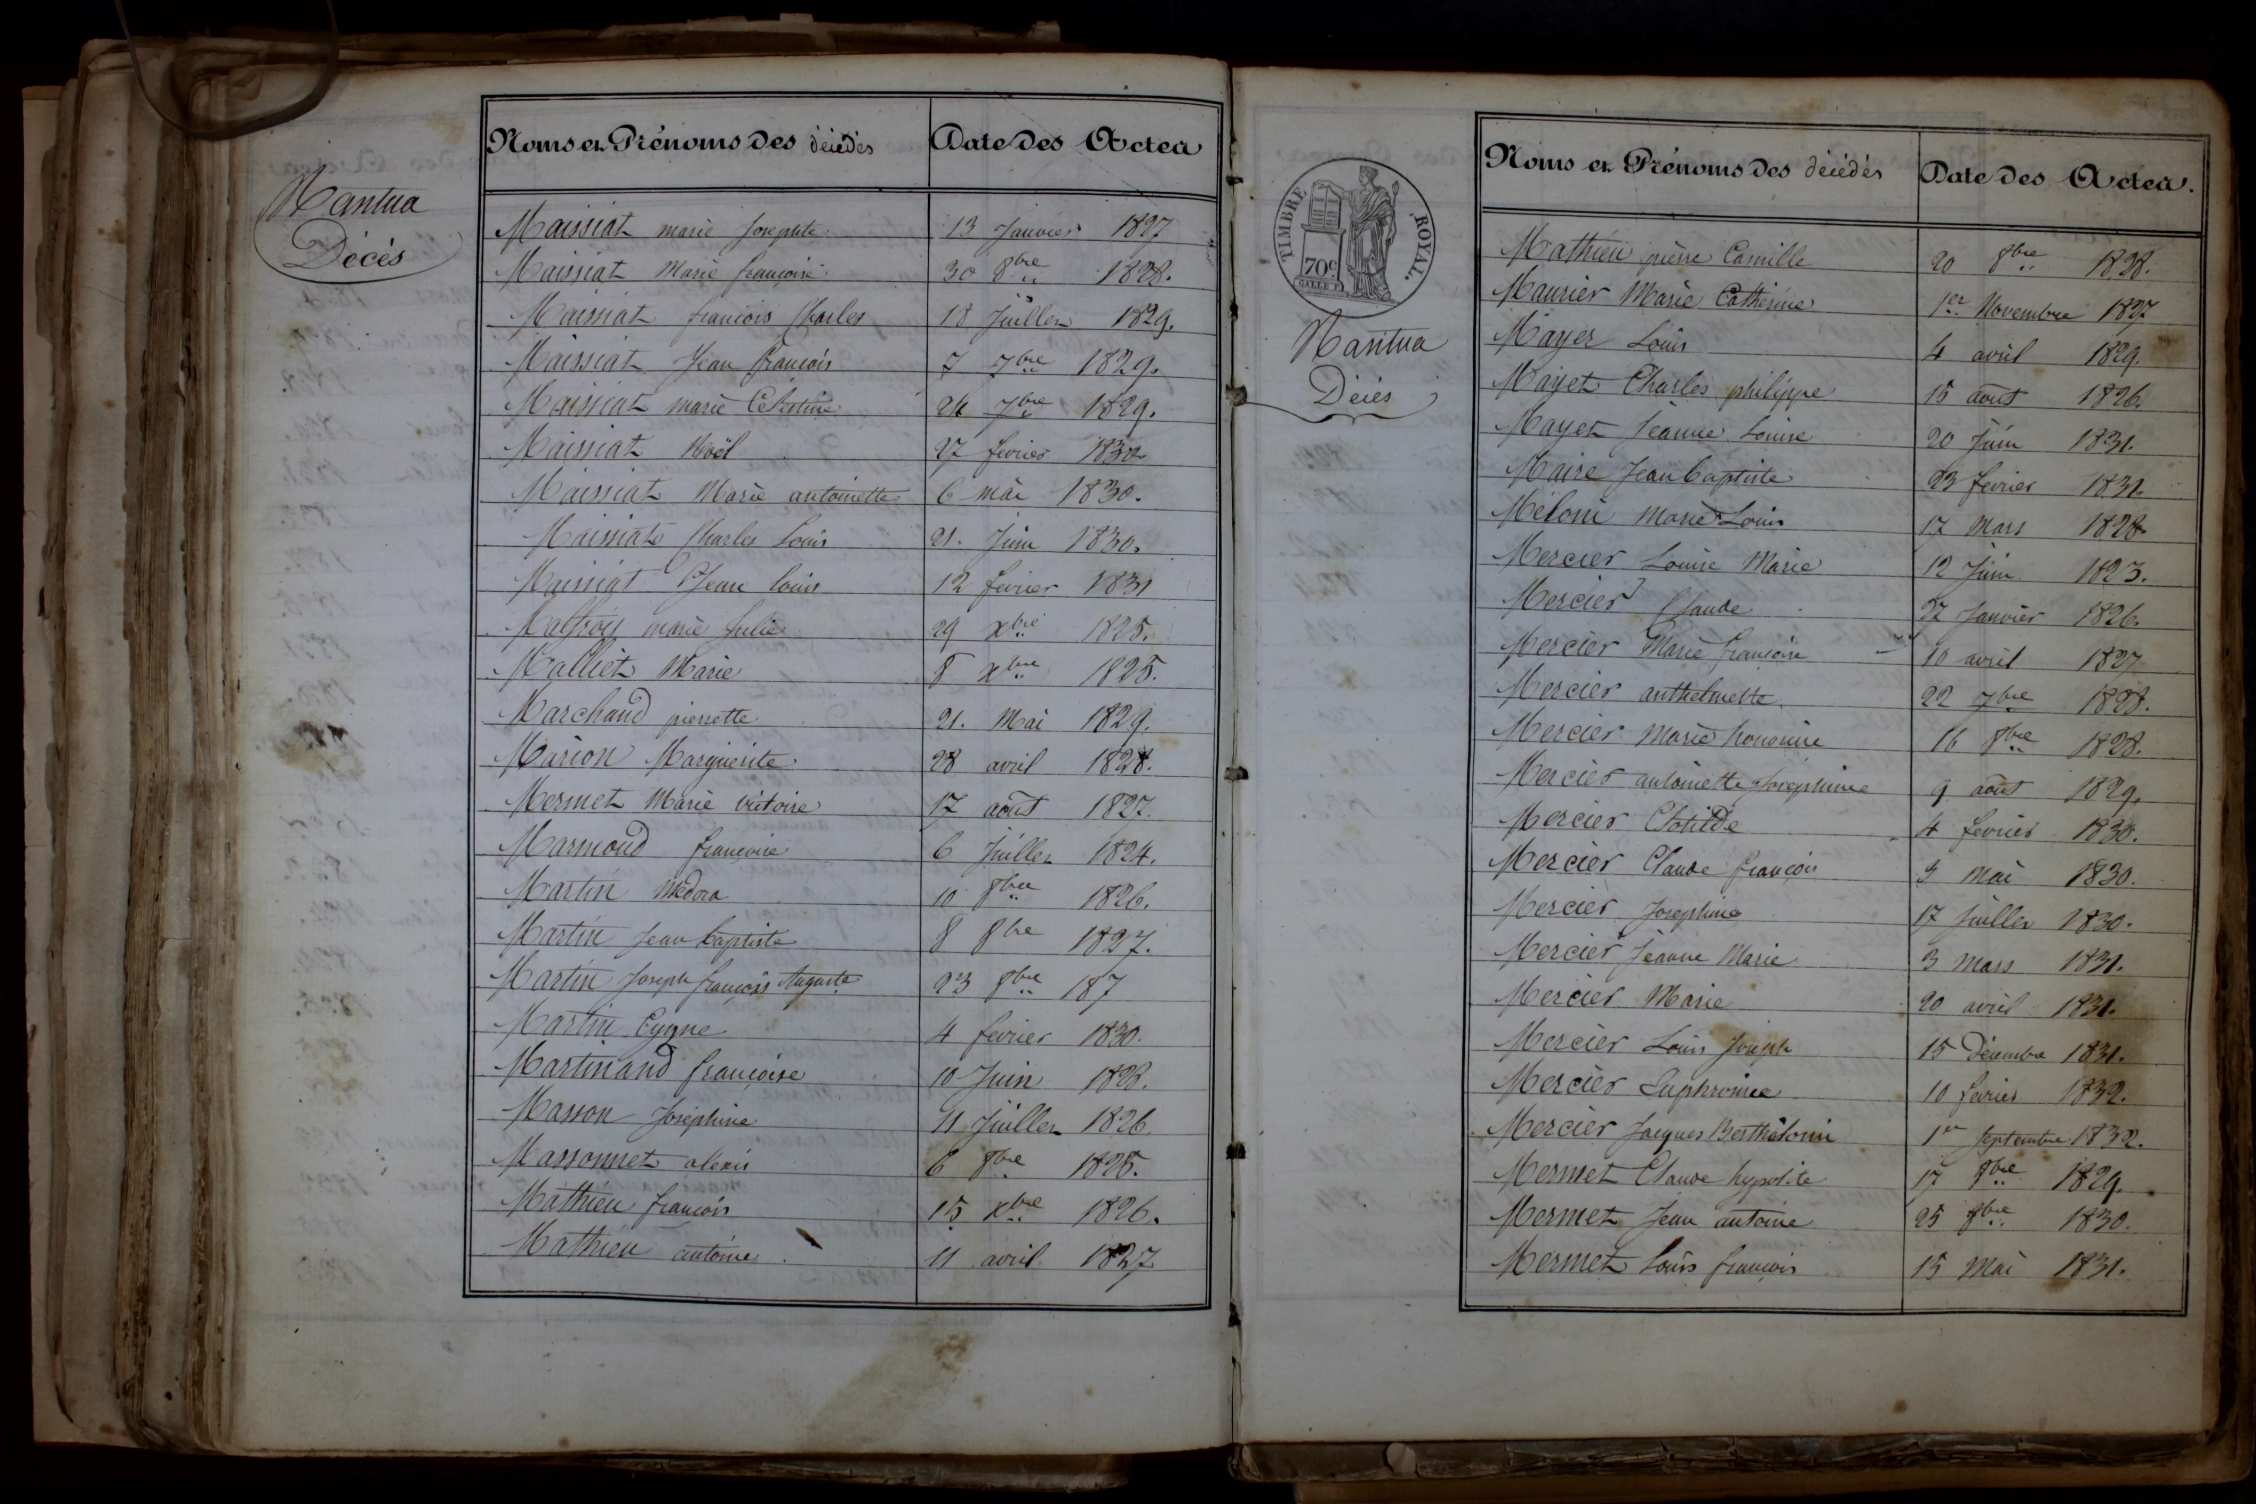 Nantua
Décès
Noms et Prénoms des décédés Date des Actes
Maissiat marie Josephte 13 Janvier 1827
Maissiat Marie françoise 30 8bre 1828.
Maissiat françois Charles 18 Juillet 1829.
Maissiat Jean François 7 7bre 1829.
Maissiat marie Célestine 24 7bre 1829.
Maissiat Noël 27 fevrier 1830
Maissiat Marie antoinette 6 mai 1830.
Maissiat Charles Louis 21. Juin 1830.
Maissiat Jean louis 12 fevrier 1831
Malfroy marie Julie 29 Xbre 1825.
Malliet Marie 8 Xbre 1825.
Marchand pierrette 21. Mai 1829.
Marion Marguerite 28 avril 1828.
Mermet Marie victoire 17 août 1827.
Marmond françoise 6 Juillet 1824.
Martin Medora 10 8bre 1826.
Martin Jean baptiste 8 8bre 1827.
Martin Joseph françois Auguste 23 8bre 187
Martin Cygne 4 fevrier 1830.
Martinand françoise 10 Juin 1828.
Masson Joséphine 11 Juillet 1826
Massonnet alexis 6 8bre 1825.
Mathieu françois 15 Xbre 1826.
Mathieu antoine 11 avril 1827
TIMBRE ROYAL.
70c
Nantua
Décès
Noms et Prénoms des décédés Date des Actes.
Mathieu pierre Camille 20 8bre 1828.
Maurier Marie Catherine 1er Novembre 1827
Mayer Louis 4 avril 1829.
Mayet Charles philippe 15 août 1826.
Mayet Jeanne Louise 20 Juin 1831.
Maire Jean baptiste 23 fevrier 1831.
Méloni marie Louis 17 Mars 1828
Mercier Louise Marie 12 Juin 1823.
Mercier Claude 27 Janvier 1826.
Mercier Marie françoise 10 avril 1827
Mercier anthelmette 22 7bre 1828.
Mercier Marie honorine 16 8bre 1828.
Mercier antoinette Joséphine 9 août 1829.
Mercier Clotilde 4 fevrier 1830.
Mercier Claude françois 3 mai 1830.
Mercier Josephine 17 Juillet 1830.
Mercier Jeanne Marie 3 mars 1831.
Mercier Marie 20 avril 1831.
Mercier Louis Joseph 15 Décembre 1831.
Mercier Euphrosine 10 fevrier 1832.
Mercier Jacques Berthelomi 1er Septembre 1832.
Mermet Claude hypolite 17 8bre 1829.
Mermet Jean antoine 25 8bre 1830.
Mermet Louis françois 15 Mai 1831.